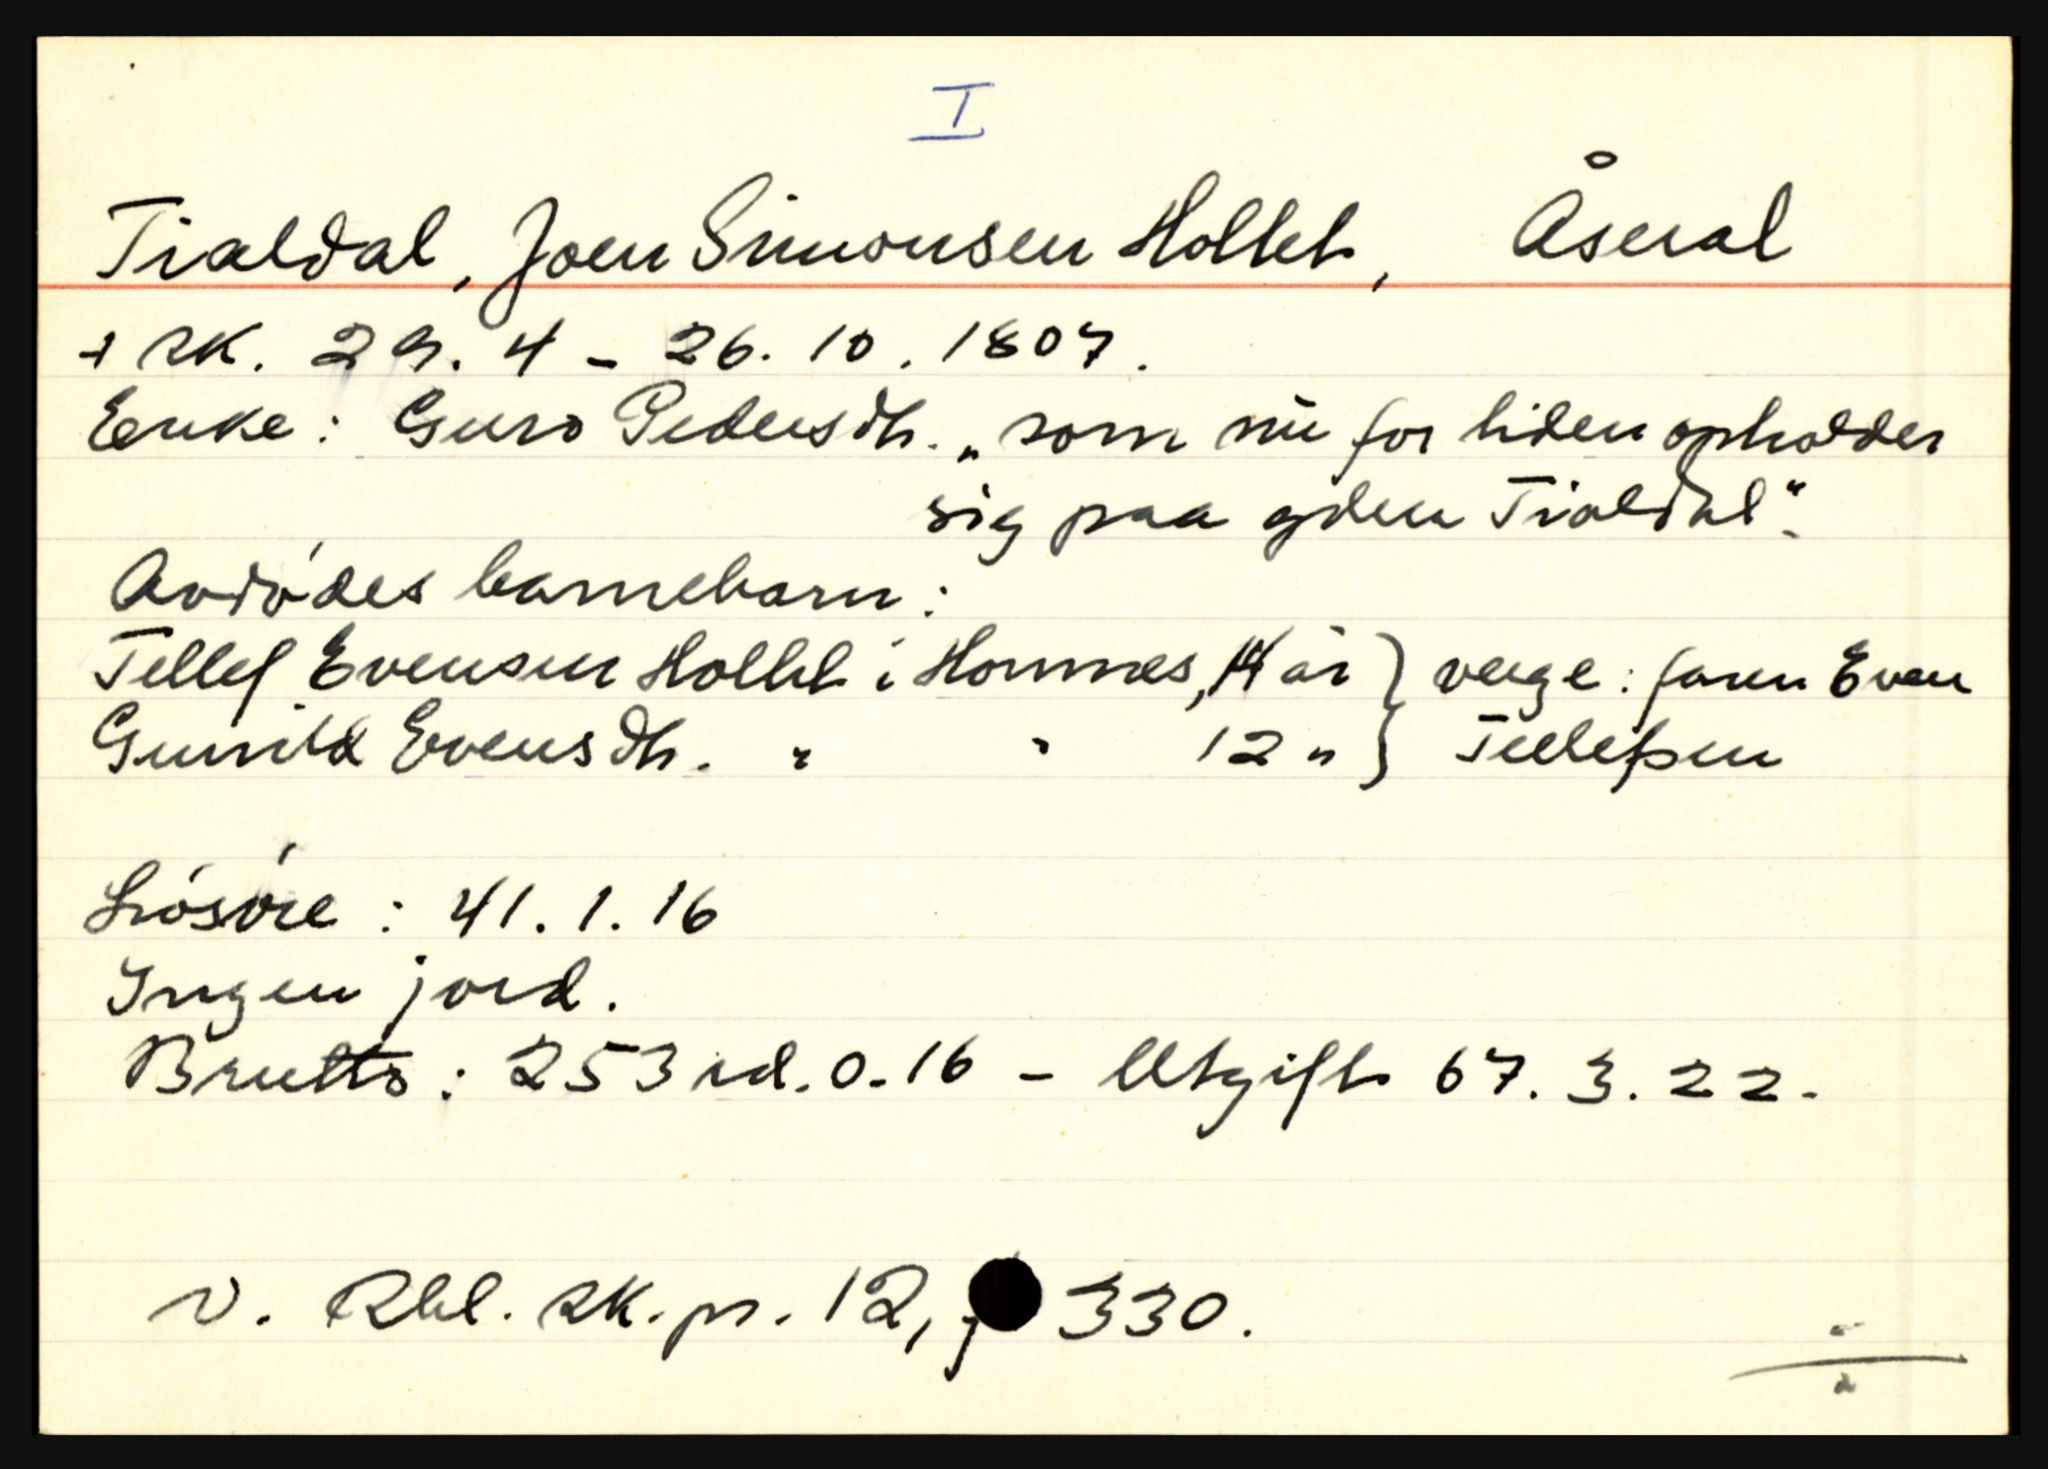 I
Tialdal, Joen Simonsen Hollet, Åseral
+ SK. 29. 4 - 26. 10. 1807.
Enke: Guro Pedersdtr. „som nu for tiden opholder
sig paa gden Tialdal".
Avdødes barnebarn:
Tellef Evensen Hollet i Homnes, 14 år } verge: faren Even
Gunild Evensdtr. " " 12 " } Tellefsen
Løsøre: 41. 1. 16
Ingen jord.
Brutto: 253 rd. 0. 16 - Utgift 67. 3. 22.
V. Rbl. SK. pr. 12, 330.